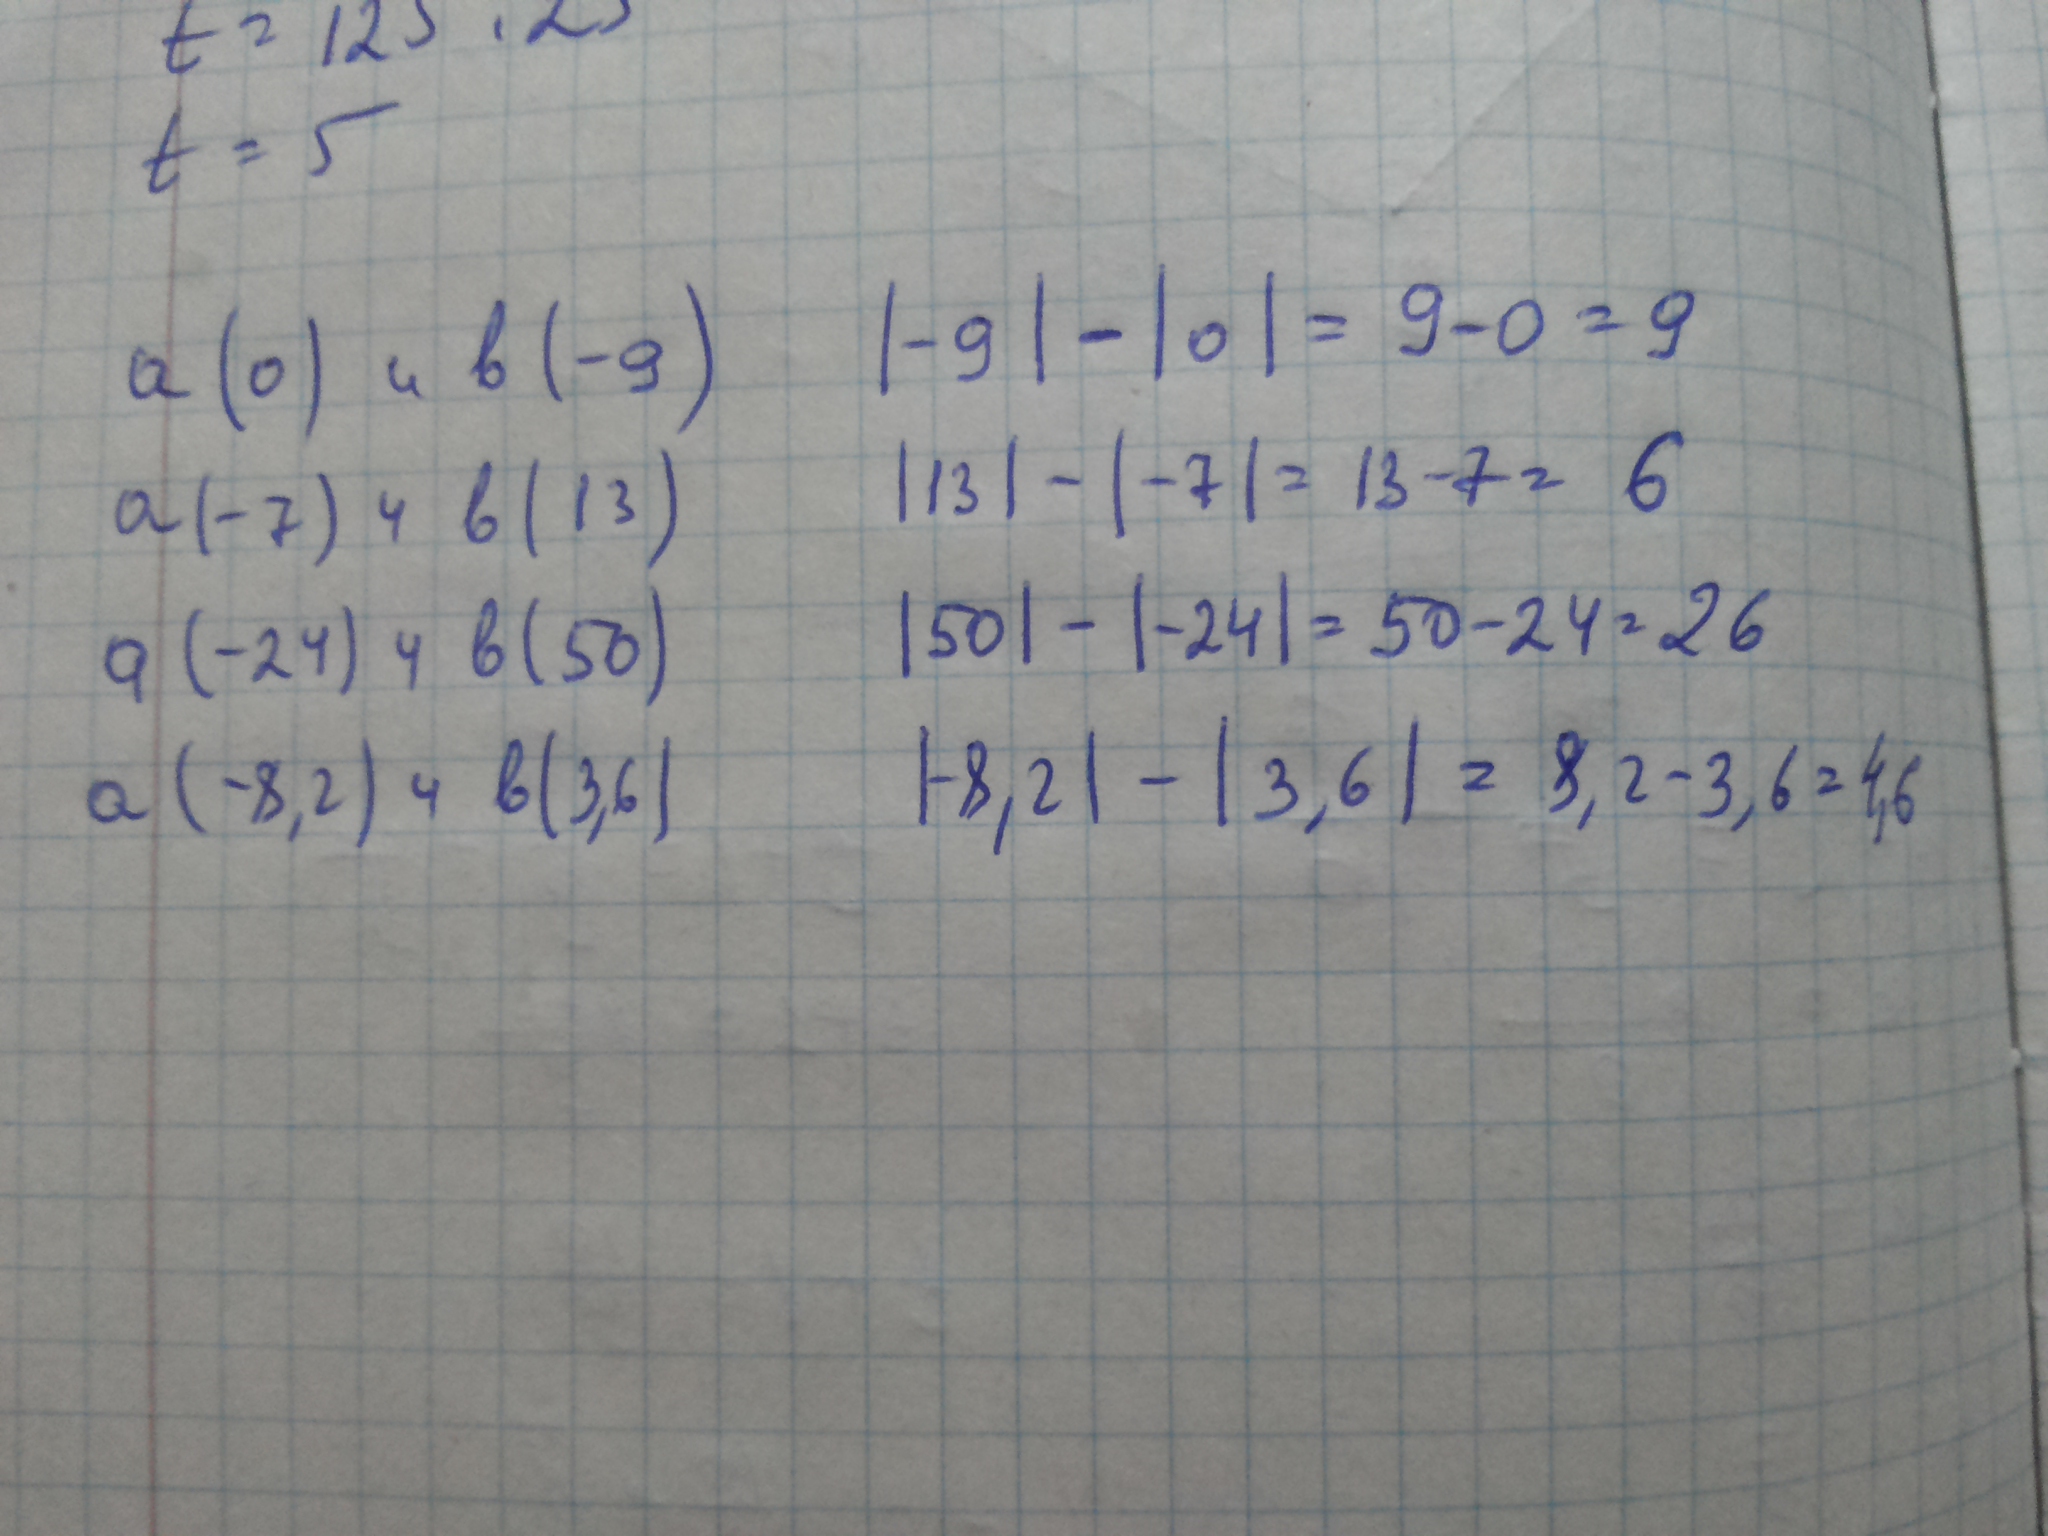 t = 125 : 25
t = 5
a (0) и в (-9) |-9| - |0| = 9-0 = 9
a (-7) и в (13) |13| - |-7| = 13-7= 6
a (-24) и в (50) |50| - |-24| = 50-24=26
a (-8,2) и в (3,6| |-8,2| - |3,6| = 8,2-3,6=4,6